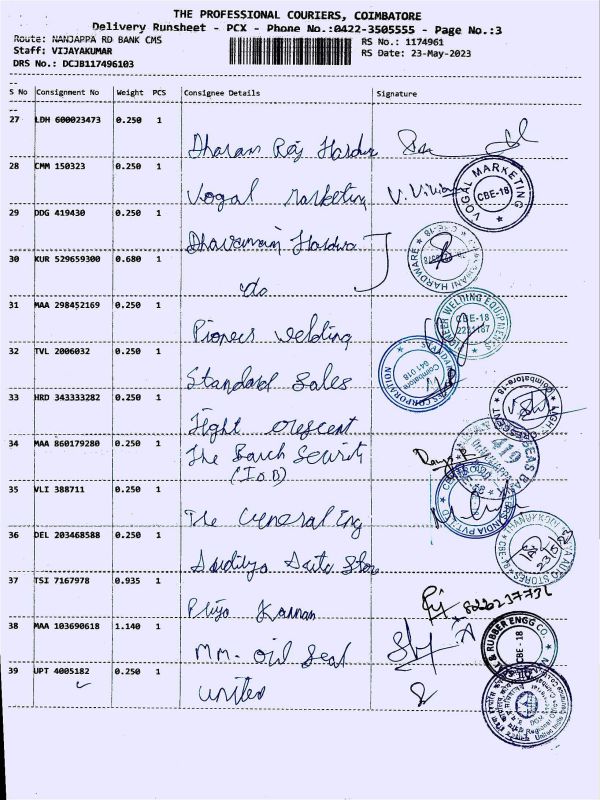 THE PROFESSIONAL COURIERS, COIMBATORE
Delivery Runsheet - PCX - Phone No.:0422-3505555 - Page No.:3
Route: NANJAPPA RD BANK CMS
RS No.: 1174961
Staff: VIJAYAKUMAR
RS Date: 23-May-2023
DRS No.: DCJB117496103
S No Consignment No Weight PCS Consignee Details Signature
27 LDH 600023473 0.250 1
Dharan Raj Hardw
28 CMM 150323 0.250 1
Vogal Marketing
VOGAL MARKETING
CBE-18
29 DDG 419430 0.250 1
Hardwa
30 KUR 529659300 0.680 1
do
HARDWARE
31 MAA 298452169 0.250 1
Pioneer Welding
PIONEER WELDING EQUIPMENTS
CBE-18
32 TVL 2006032 0.250 1
Standard Sales
Coimbatore
641 018
33 HRD 343333282 0.250 1
Light crescent
34 MAA 860179280 0.250 1
The Banch
(I.O.B)
419
35 VLI 388711 0.250 1
The General Ing
36 DEL 203468588 0.250 1
Auto Store
23/5/23
37 TSI 7167978 0.935 1
Priya Kannan
38 MAA 103690618 1.140 1
MM. Oil Seal
RUBBER ENGG CO.
CBE - 18
39 UPT 4005182 0.250 1
United